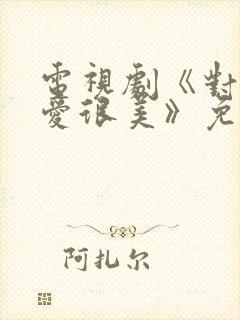 電視劇《對
愛很美》免
阿扎尔